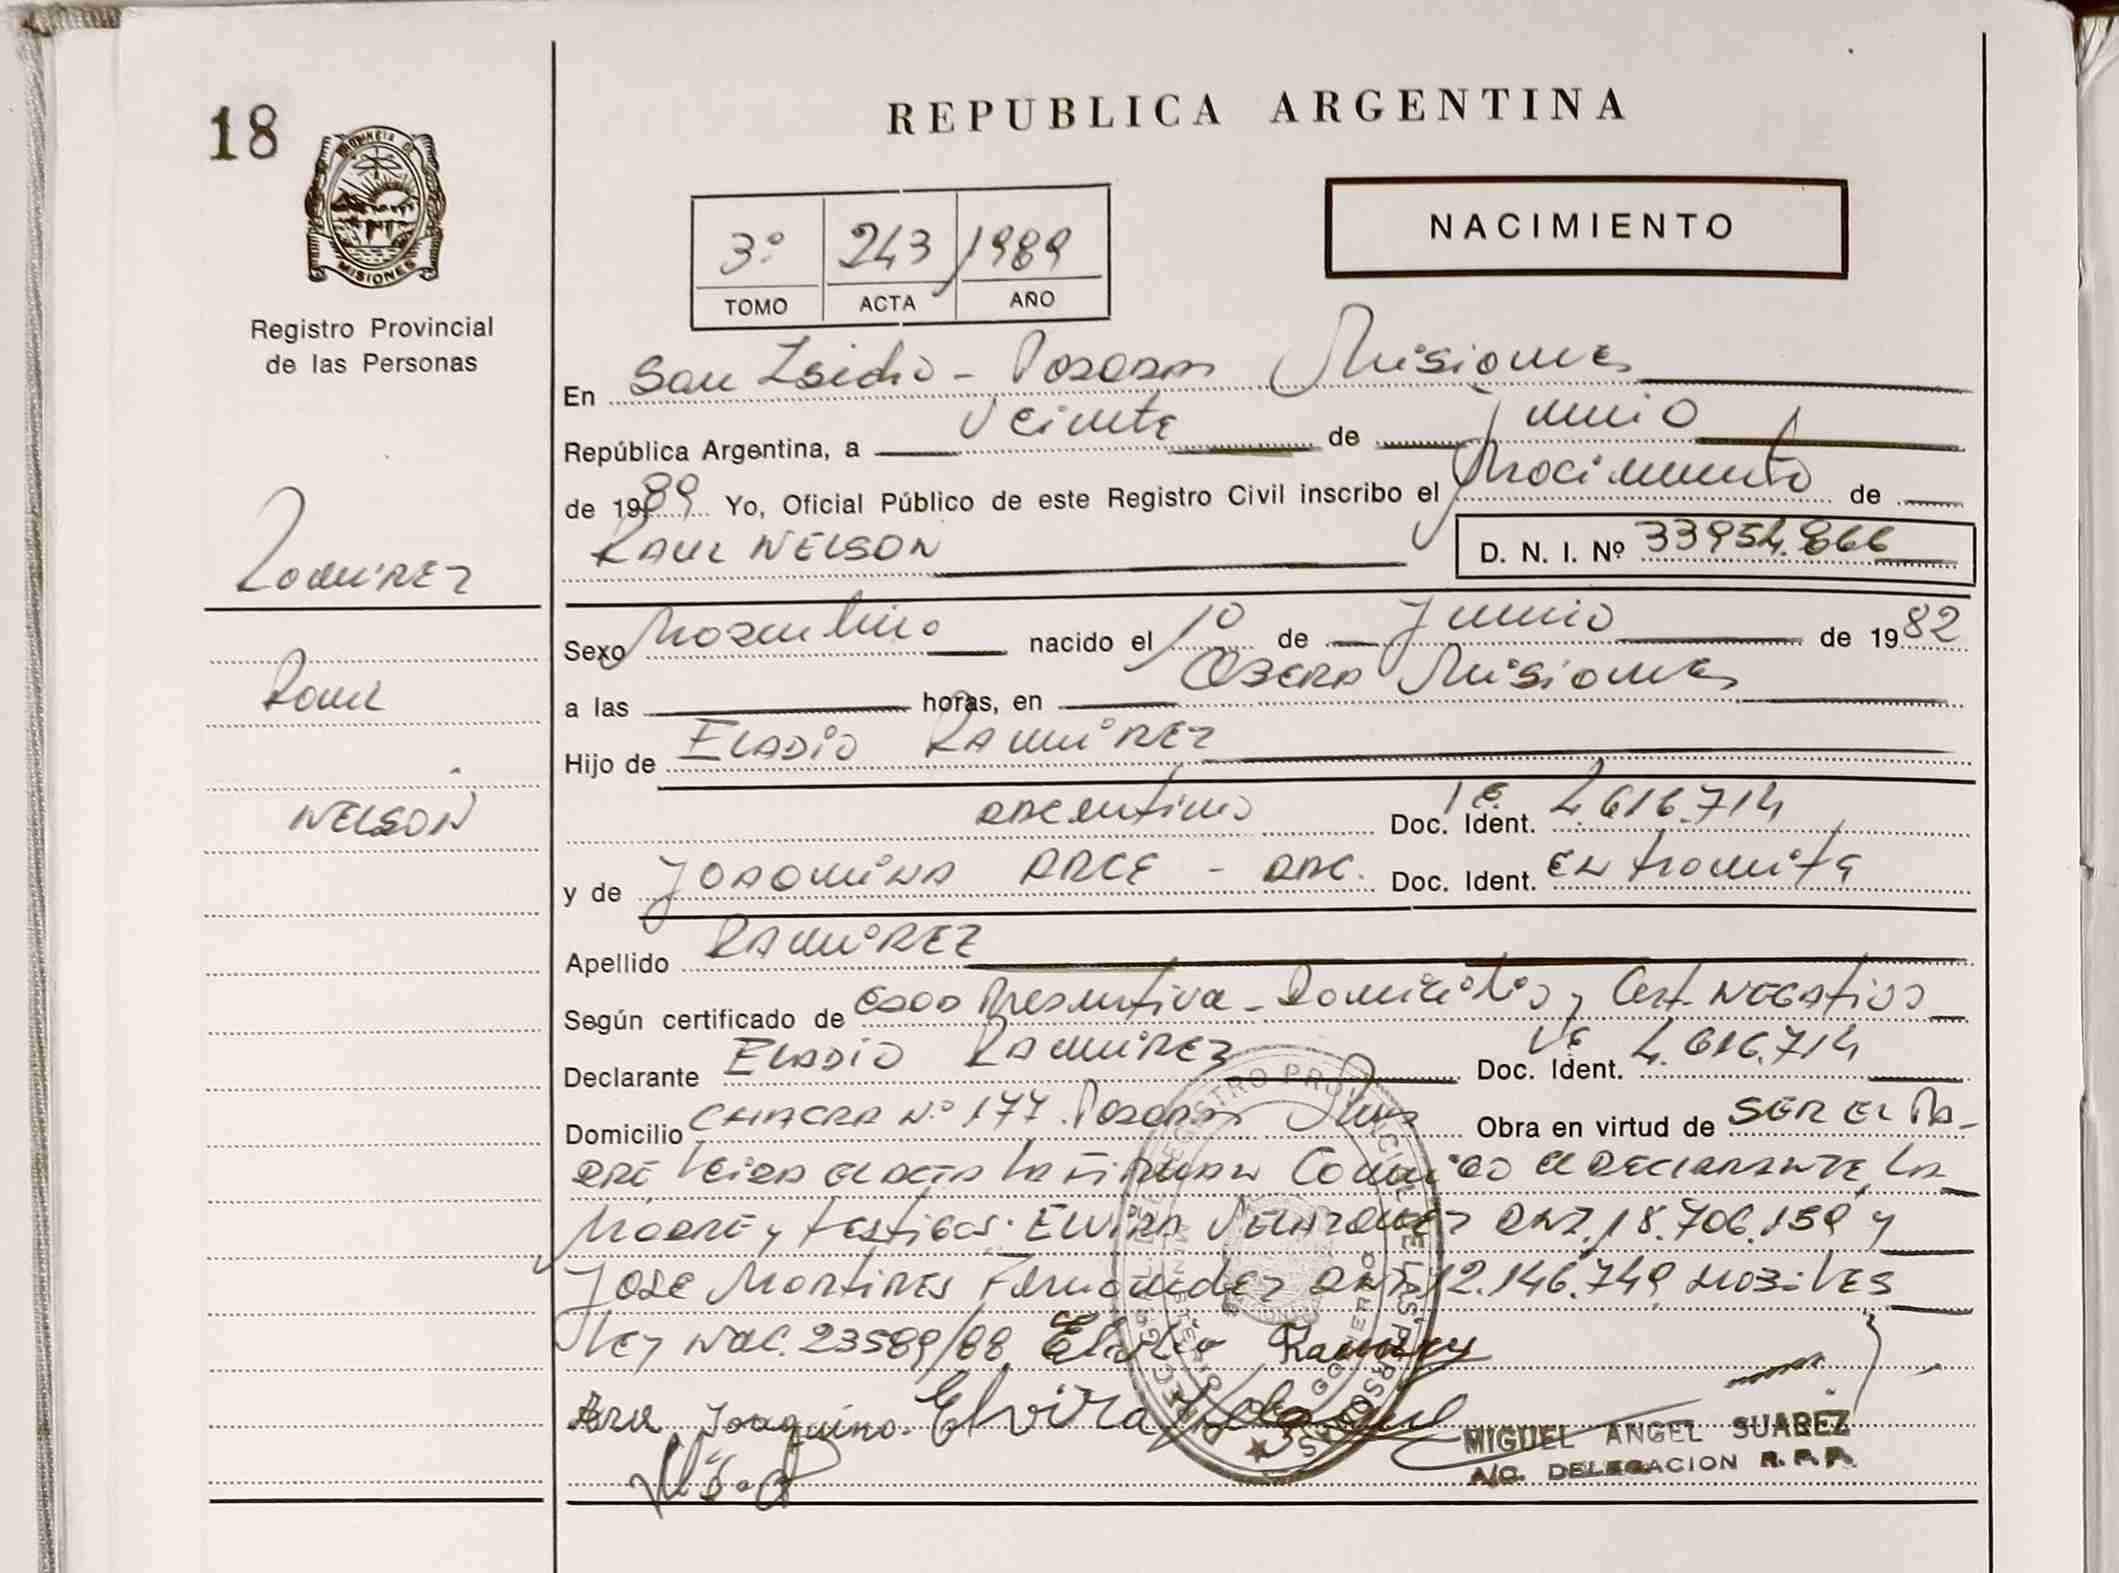 18
REPUBLICA ARGENTINA
PROVINCIA DE
MISIONES
Registro Provincial
de las Personas
3º 243 1989
TOMO ACTA AÑO
NACIMIENTO
En San Isidro - Posadas Misiones
República Argentina, a Veinte de Junio
de 1989 Yo, Oficial Público de este Registro Civil inscribo el Nacimiento de
RAUL NELSON D. N. I. Nº 33954.866
Ramirez
Raul
NELSON
Sexo Masculino nacido el 1º de Junio de 1982
a las horas, en Obera Misiones
Hijo de ELADIO RAMIREZ
argentino Doc. Ident. 4.616.714
y de JOAQUINA ARCE - arg. Doc. Ident. en tramite
Apellido RAMIREZ
Según certificado de Domicilio y Cert. Negativo
Declarante ELADIO RAMIREZ Doc. Ident. 4.616.714
Domicilio CHACRA Nº 177 Posadas Mnes Obra en virtud de SER EL PA-
DRE leida el acta la firman Conmigo el DECLARANTE, LA
Madre y testigos: ELVIRA VELAZQUEZ DNI. 18.706.159 y
JOSE Martires Fernandez DNI 12.146.749 MOVILES
Ley Nac. 23589/88 Eladio Ramirez
Arce Joaquina Elvira
MIGUEL ANGEL SUAREZ
A/C. DELEGACION R. P. P.
REGISTRO PROVINCIAL DE LAS PERSONAS